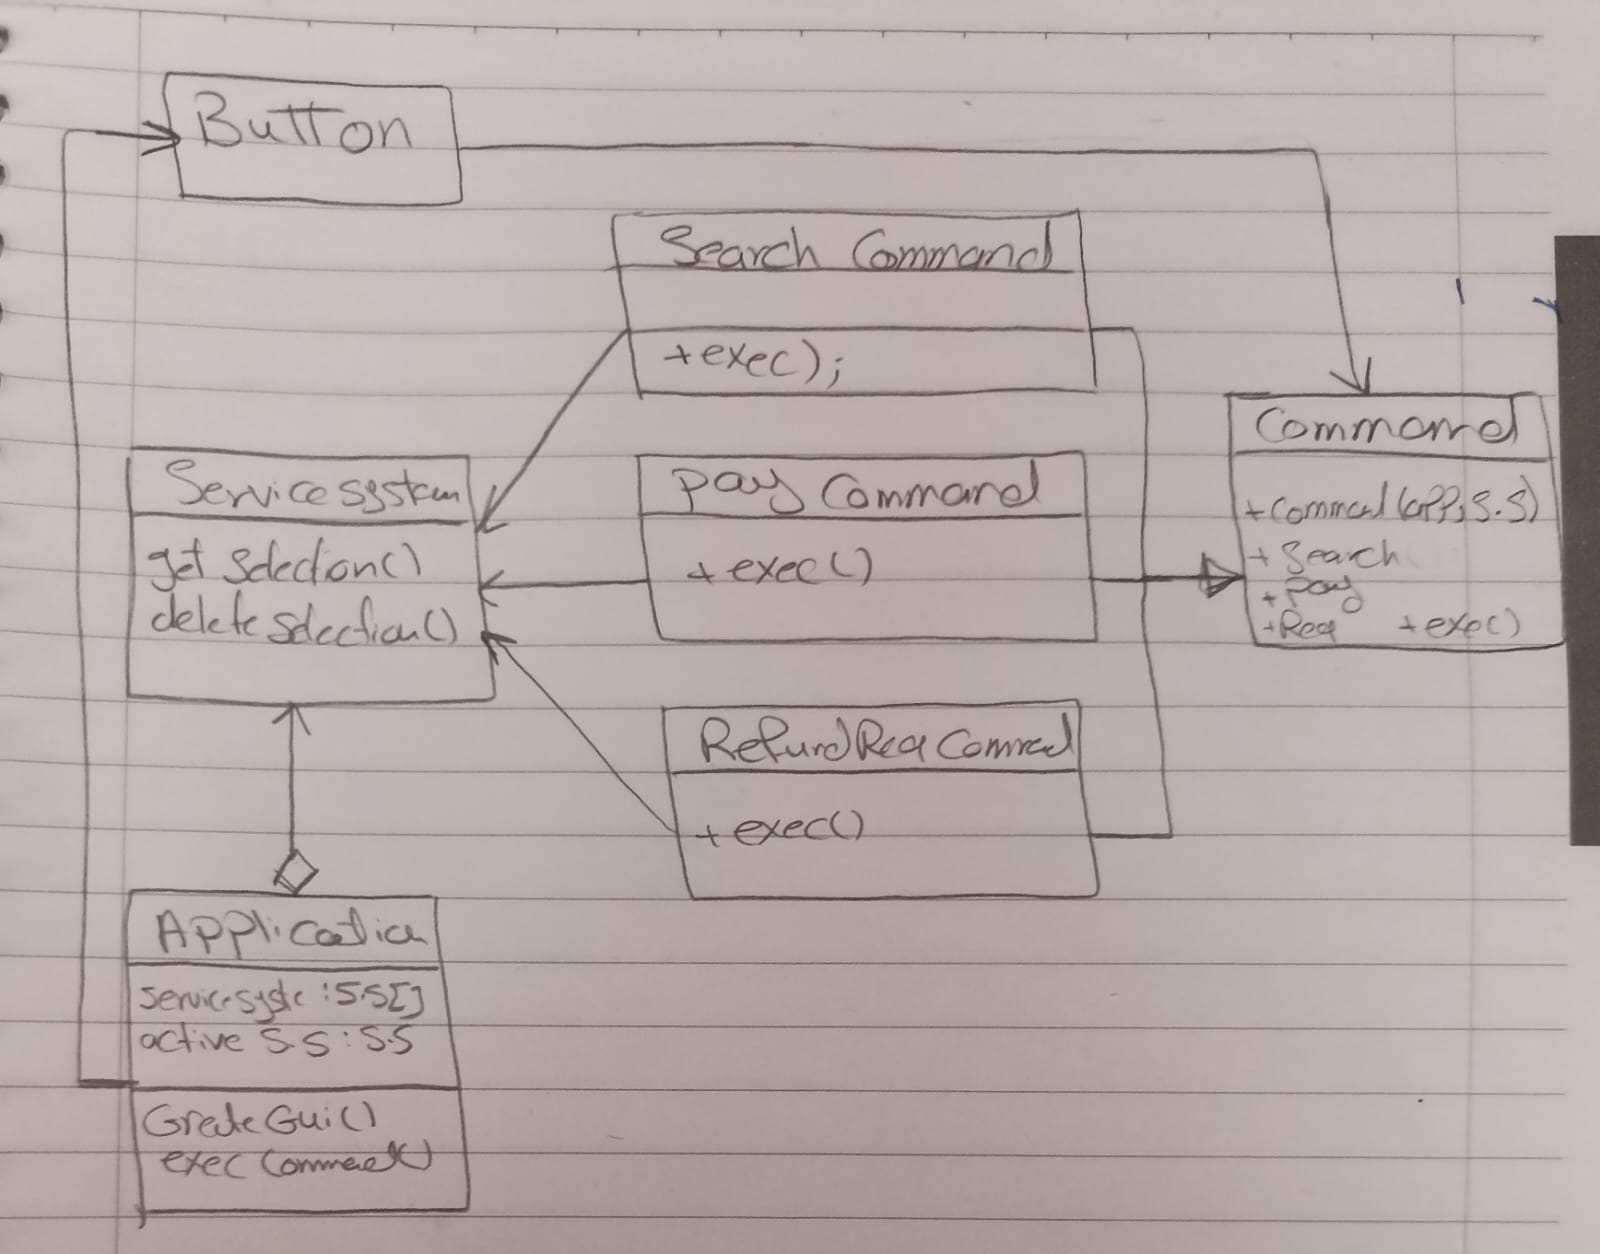 Button
Search Command
+exec();
Command
+Command(app,S.S)
+Search
+Pay
+Req +exec()
Service system
get Selection()
delete Selection()
Pay Command
+exec()
RefundReq Command
+exec()
Application
Service syste :S.S[]
active S.S:S.S
Create Gui()
exec Command()